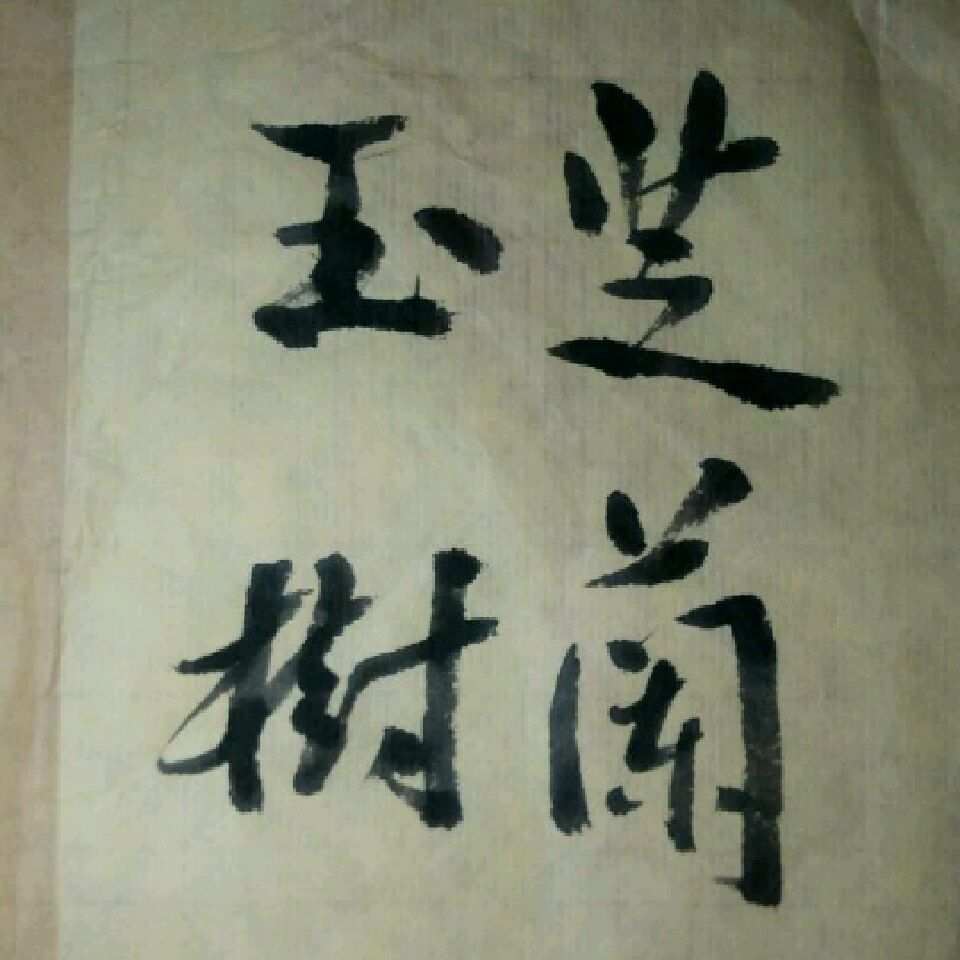 芝蘭
玉樹